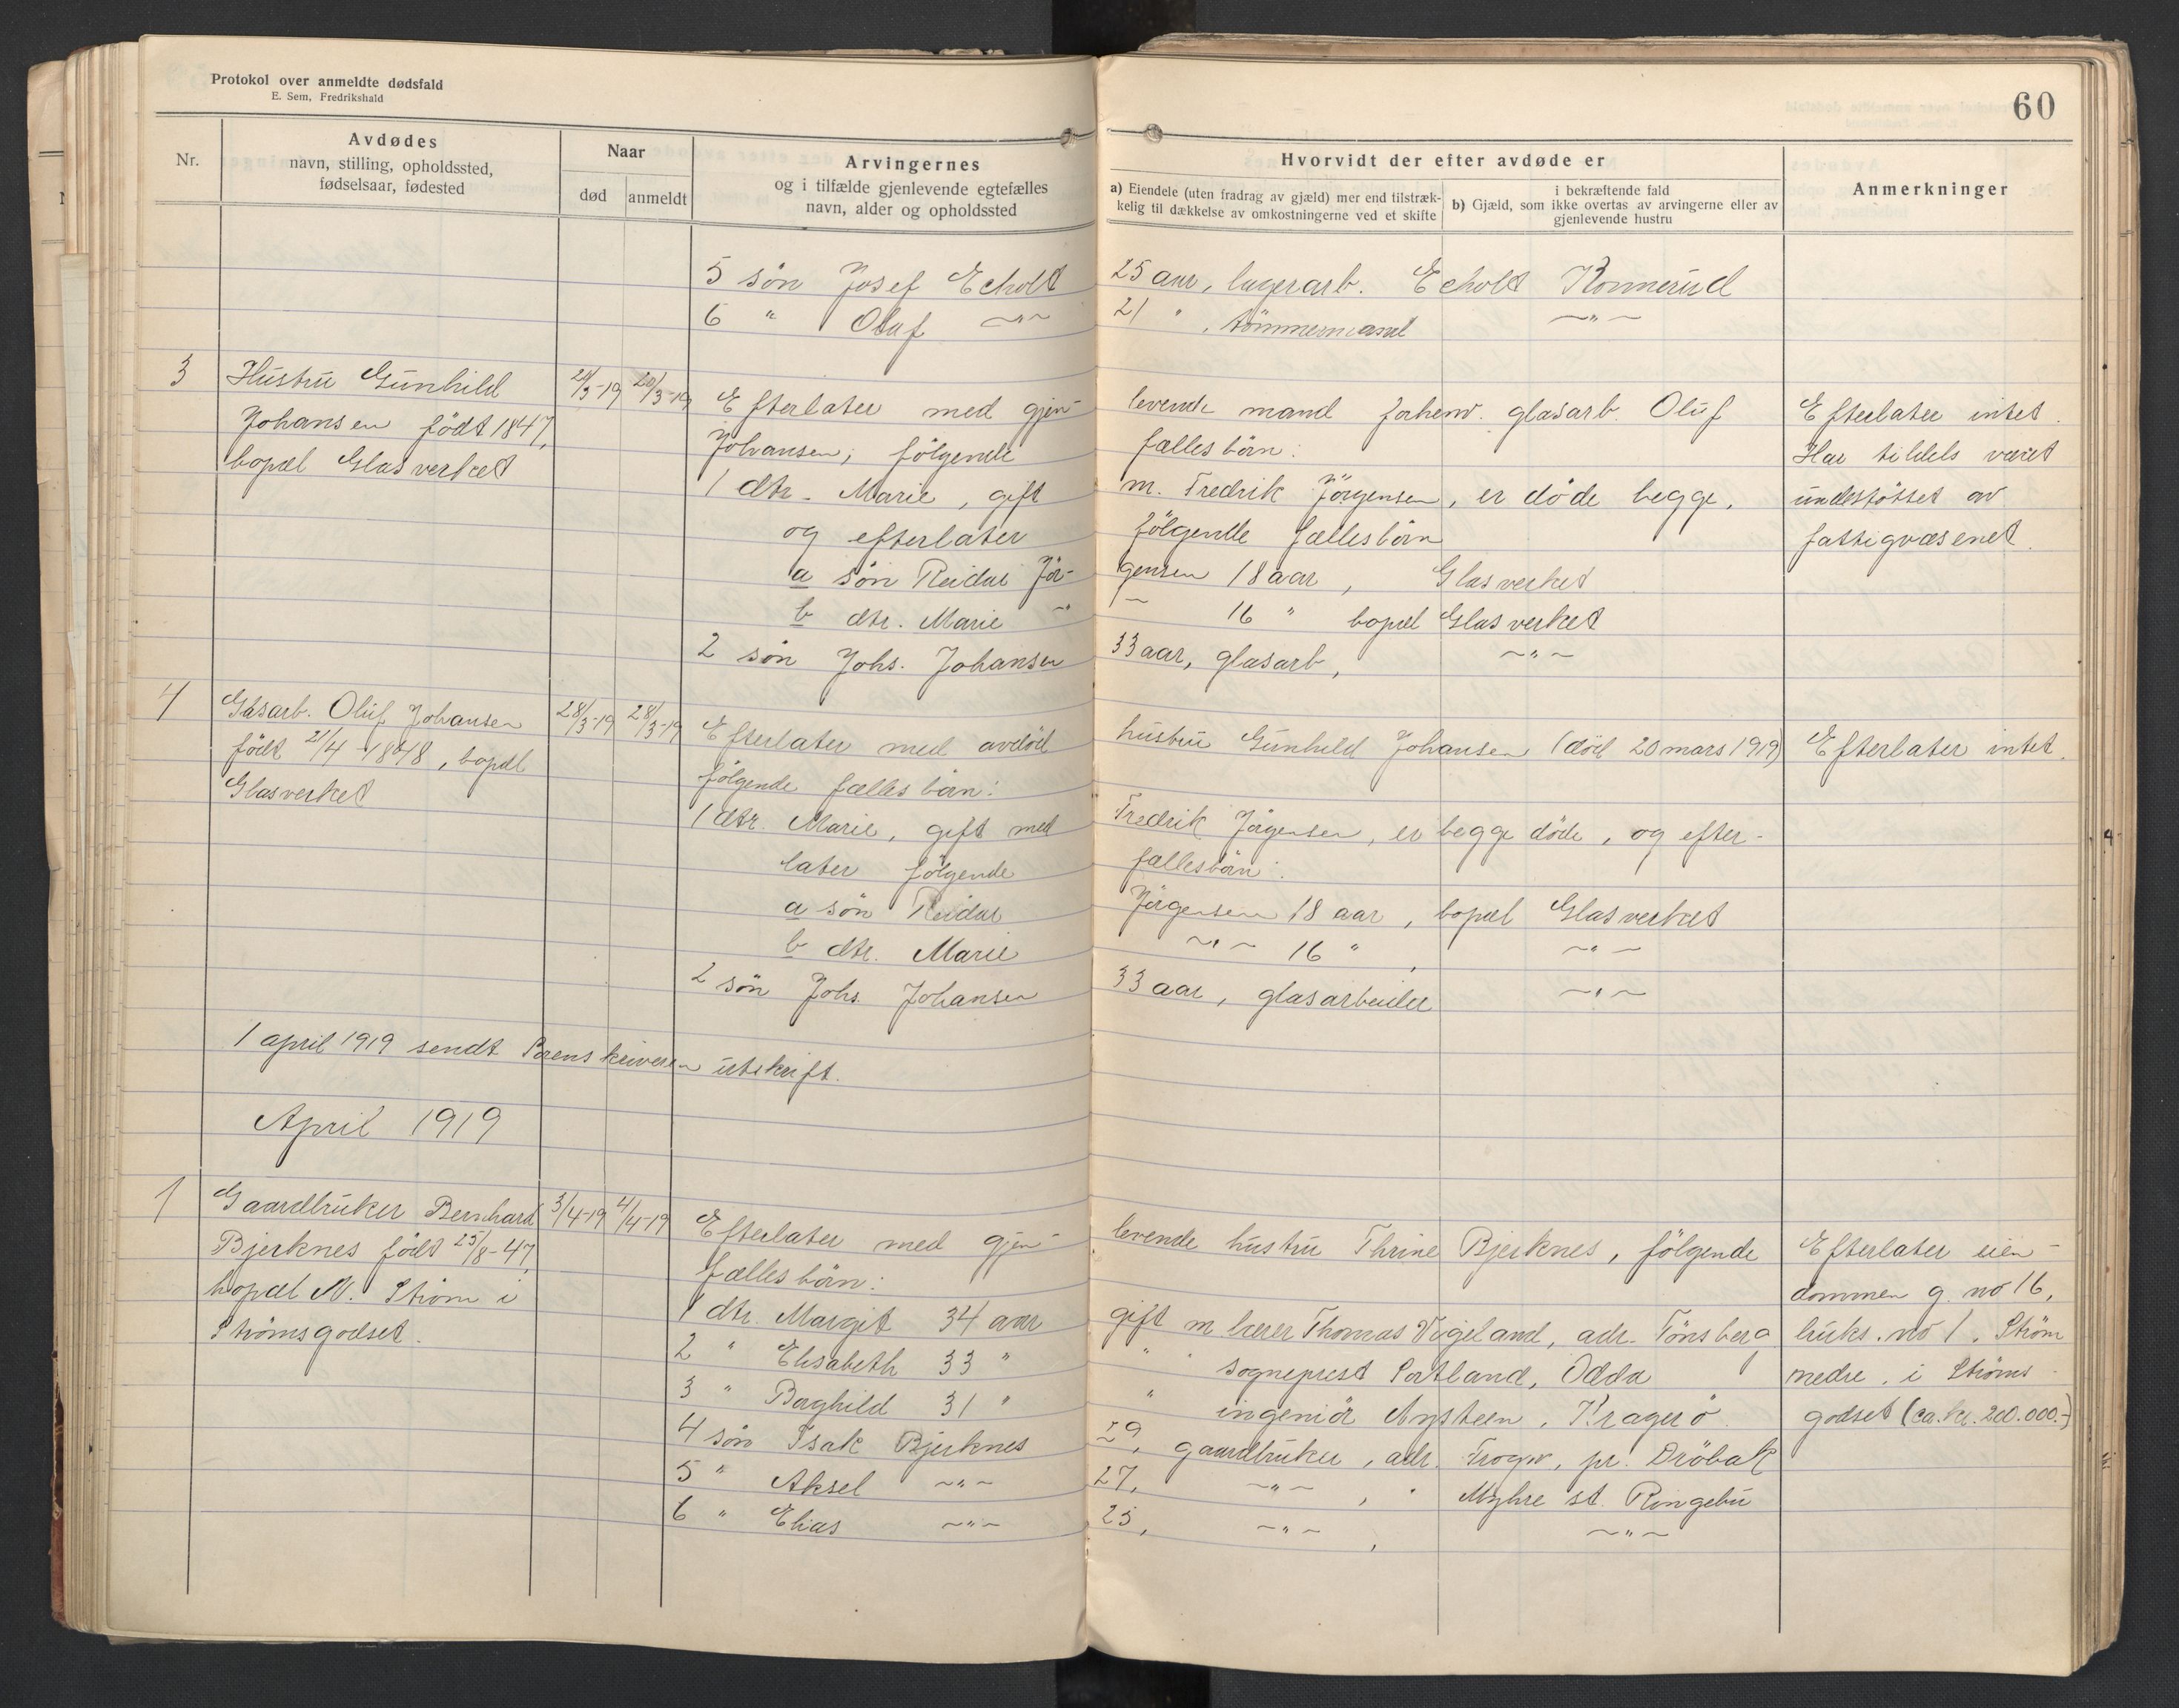 Protokol over anmeldte dødsfald
E. Sem, Fredrikshald
60
Nr.
Avdødes
navn, stilling, opholdssted,
fødselsaar, fødested
Naar
død anmeldt
Arvingernes
og i tilfælde gjenlevende egtefælles
navn, alder og opholdssted
Hvorvidt der efter avdøde er
a) Eiendele (uten fradrag av gjæld) mer end tilstræk-
kelig til dækkelse av omkostningerne ved et skifte
i bekræftende fald
b) Gjæld, som ikke overtas av arvingerne eller av
gjenlevende hustru
Anmerkninger
5 sön Josef Echolt 25 aar, lagerarb. Echolt Konnerud
6 " Olaf ~"~ 21 " , tömmermand ~"~
3 Hustru Gunhild
Johansen födt 1847,
bopæl Glasverket
20/3-19
Efterlater med gjen- levende mand forhenv. glasarb. Oluf
Johansen, følgende fællesbörn:
1 dtr. Marie, gift m. Fredrik Jörgensen, er döde begge,
og efterlater fölgende fællesbörn
a sön Reidar Jör- gensen 18 aar, Glasverket
b dtr. Marie ~" ~ 16 " bopæl Glasverket
2 sön Johs. Johansen 33 aar, glasarb, ~"~
Efterlater intet.
Har tildels været
understöttet av
fattigvæsenet.
4 Glasarb. Oluf Johansen
födt 21/4-1848, bopæl
Glasverket
28/3-19 28/3-19
Efterlater med avdöd hustru Gunhild Johansen (död 20 mars 1919)
fölgende fællesbörn:
1 dtr. Marie, gift med Fredrik Jörgensen, er begge döde, og efter-
later fölgende fællesbörn:
a sön Reidar Jörgensen 18 aar, bopæl Glasverket
b dtr. Marie ~"~ 16 " , ~"~
2 sön Johs. Johansen 33 aar, glasarbeider ~"~
Efterlater intet.
1 april 1919 sendt Sorenskriveren utskrift.
April 1919
1 Gaardbruker Bernhard
Bjerknes födt 25/8-47,
bopæl N. Ström i
Strömsgodset.
3/4-19 4/4-19
Efterlater med gjen- levende hustru Thrine Bjerknes, fölgende
fællesbörn:
1 dtr. Margit 34 aar gift m lærer Thomas Vigeland, adr. Tönsberg
2 " Elisabeth 33 " " " sogneprest Portland, Odda
3 " Borghild 31 " " ingeniör Aysteen, Kragerö.
4 sön Isak Bjerknes 29, gaardbruker, adr. Frogn, pr. Dröbak
5 " Aksel ~"~ 27, ~"~ , " Myhre st. Ringebu
6 " Elias ~"~ 25, ~"~ , ~"~
Efterlater eien-
dommen g. no 16,
bruks. no 1, Ström
nedre, i Ströms-
godset (ca. kr. 200.000.-)